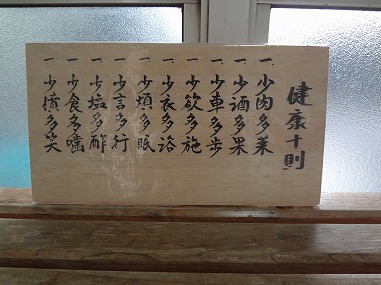 健康十則
一、少肉多菜
一、少酒多果
一、少車多歩
一、少欲多施
一、少衣多浴
一、少煩多眠
一、少言多行
一、少塩多酢
一、少食多噛
一、少憤多笑